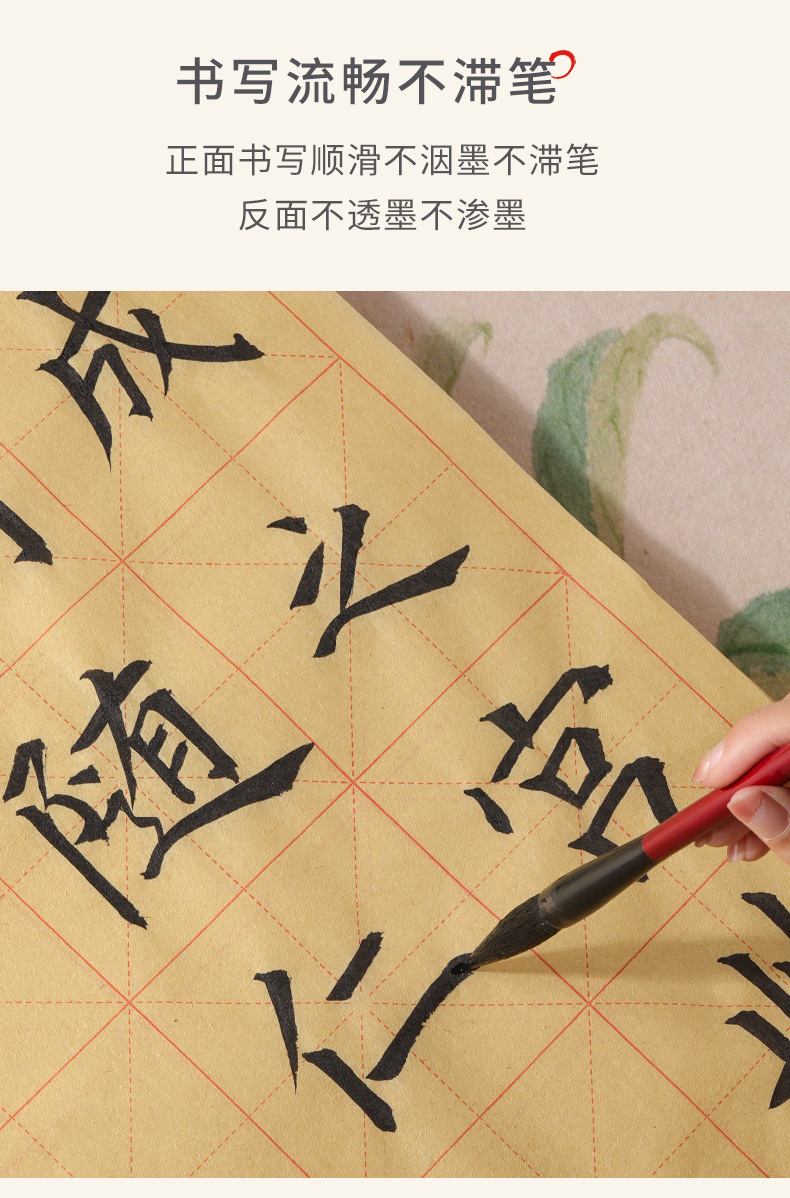 书写流畅不滞笔
正面书写顺滑不洇墨不滞笔
反面不透墨不渗墨
成
之
随
宫
仁